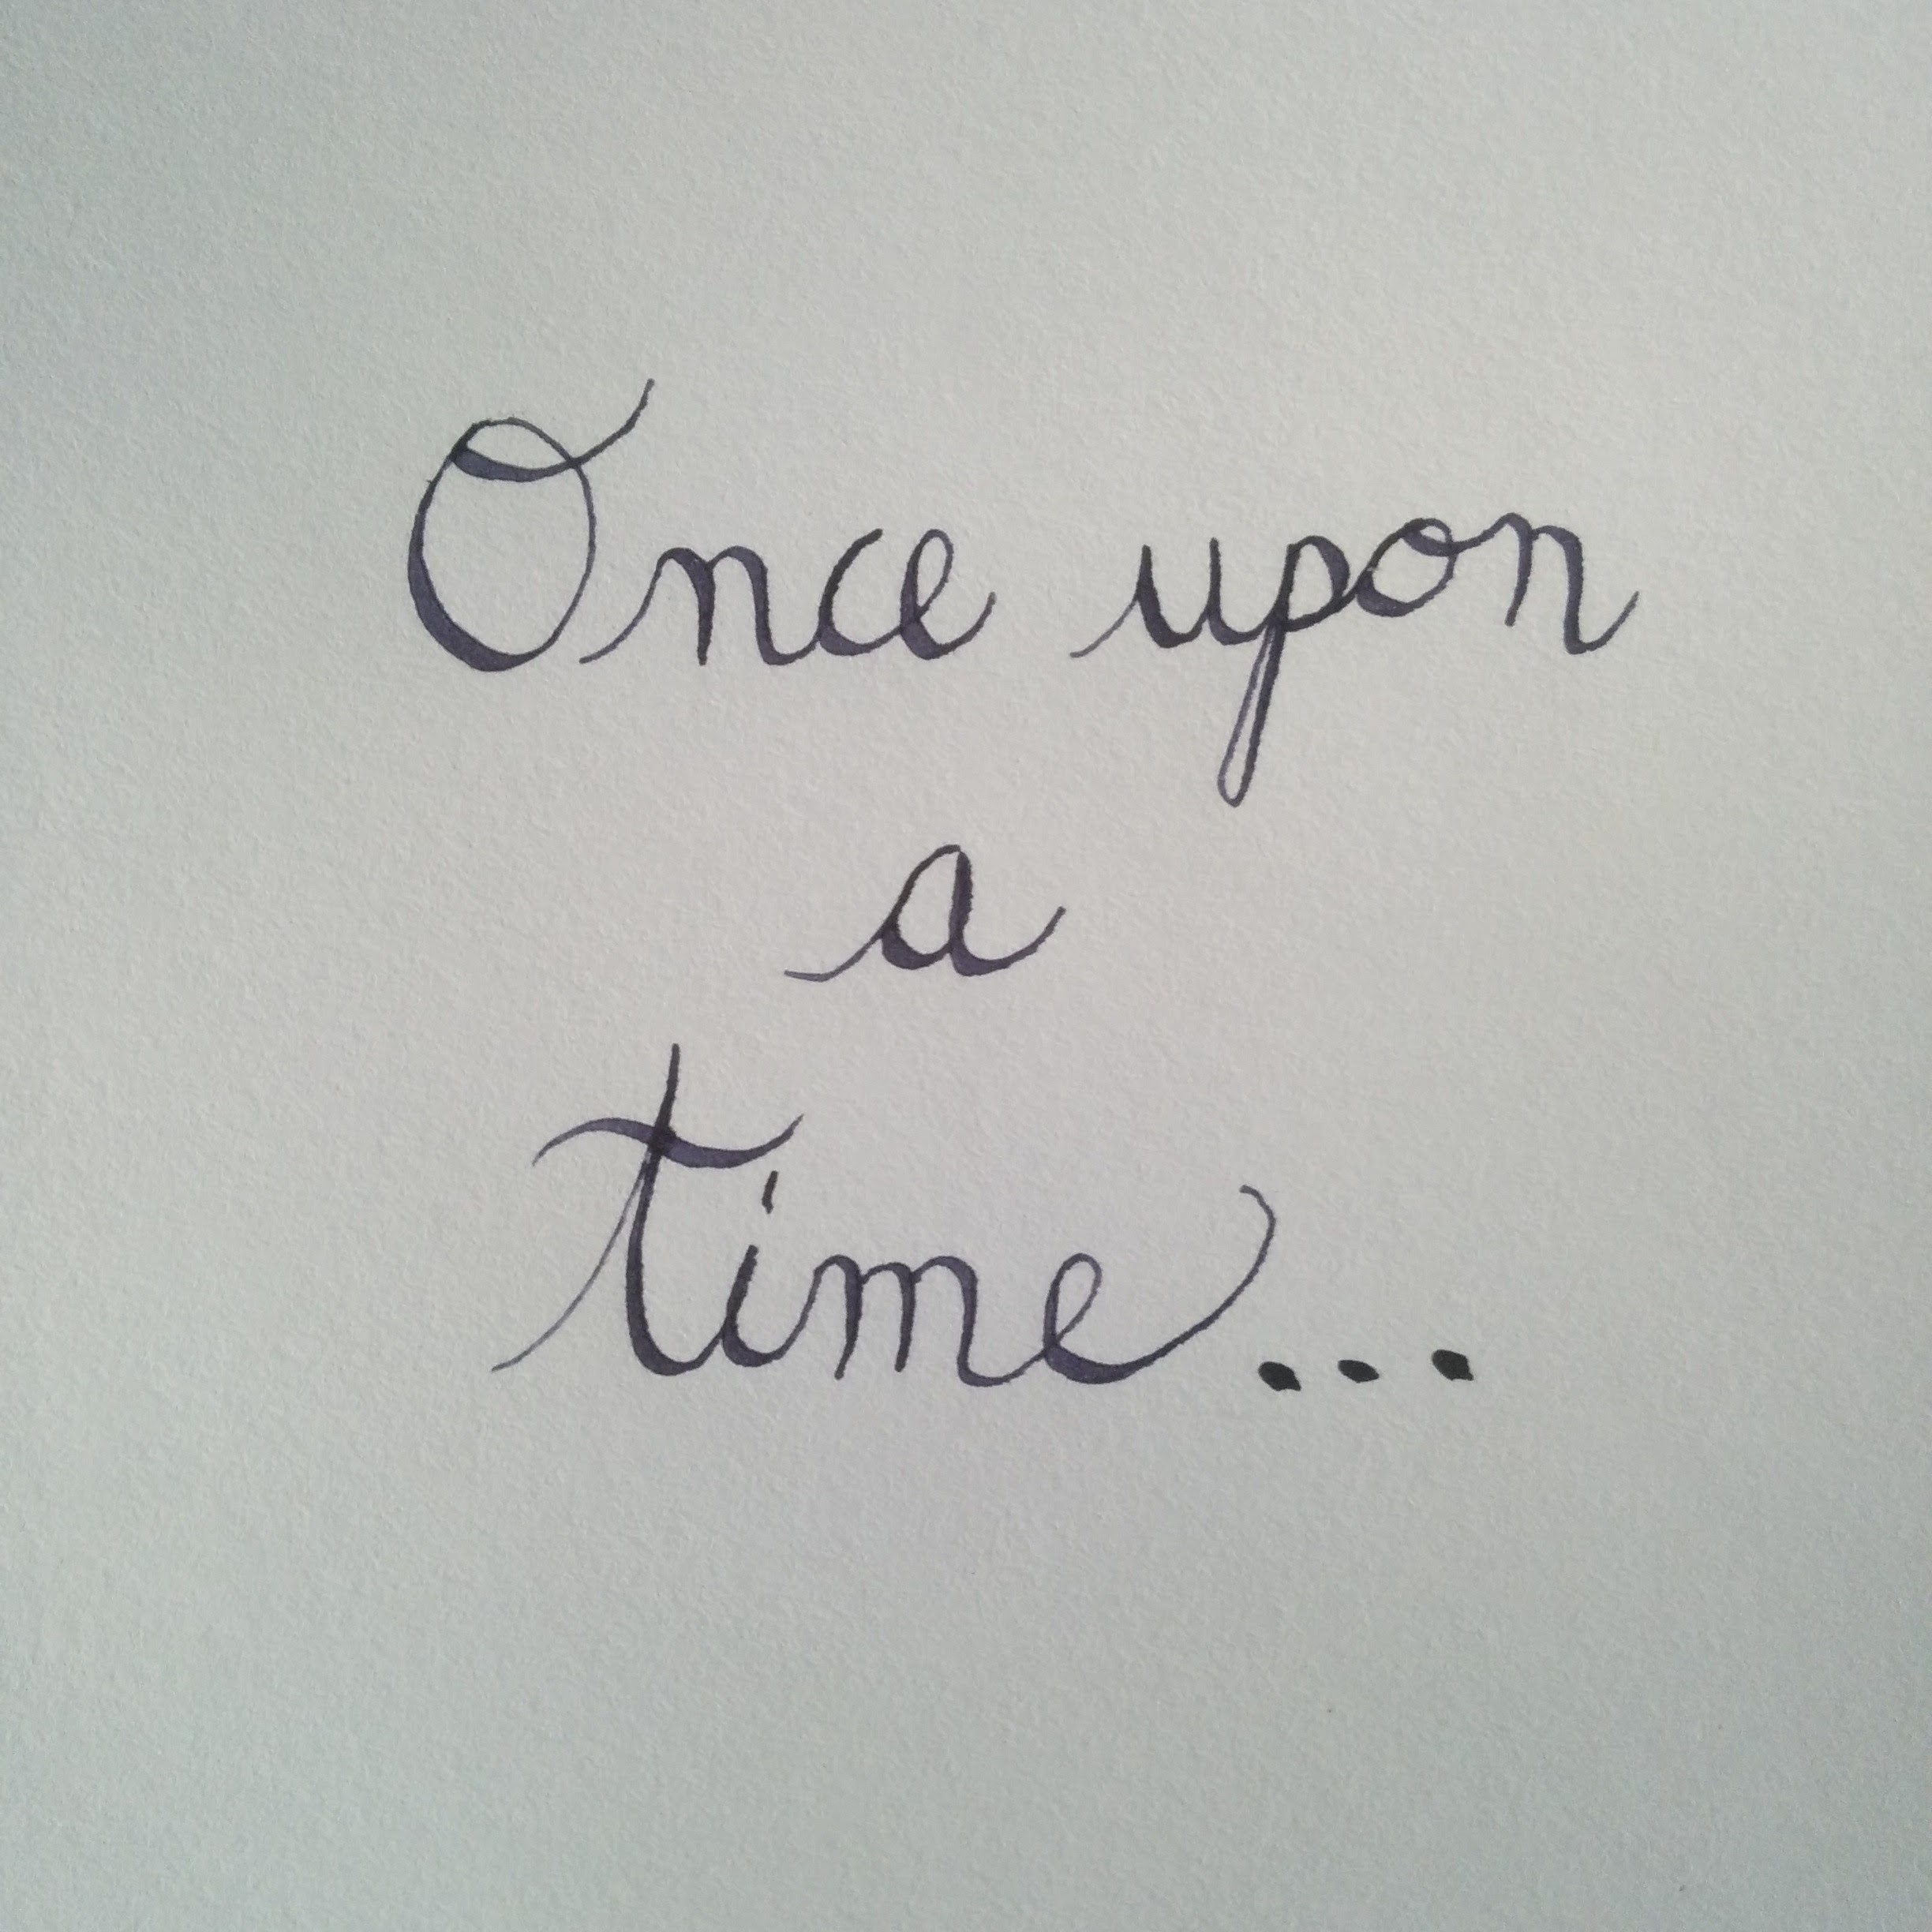 Once upon
a
time...